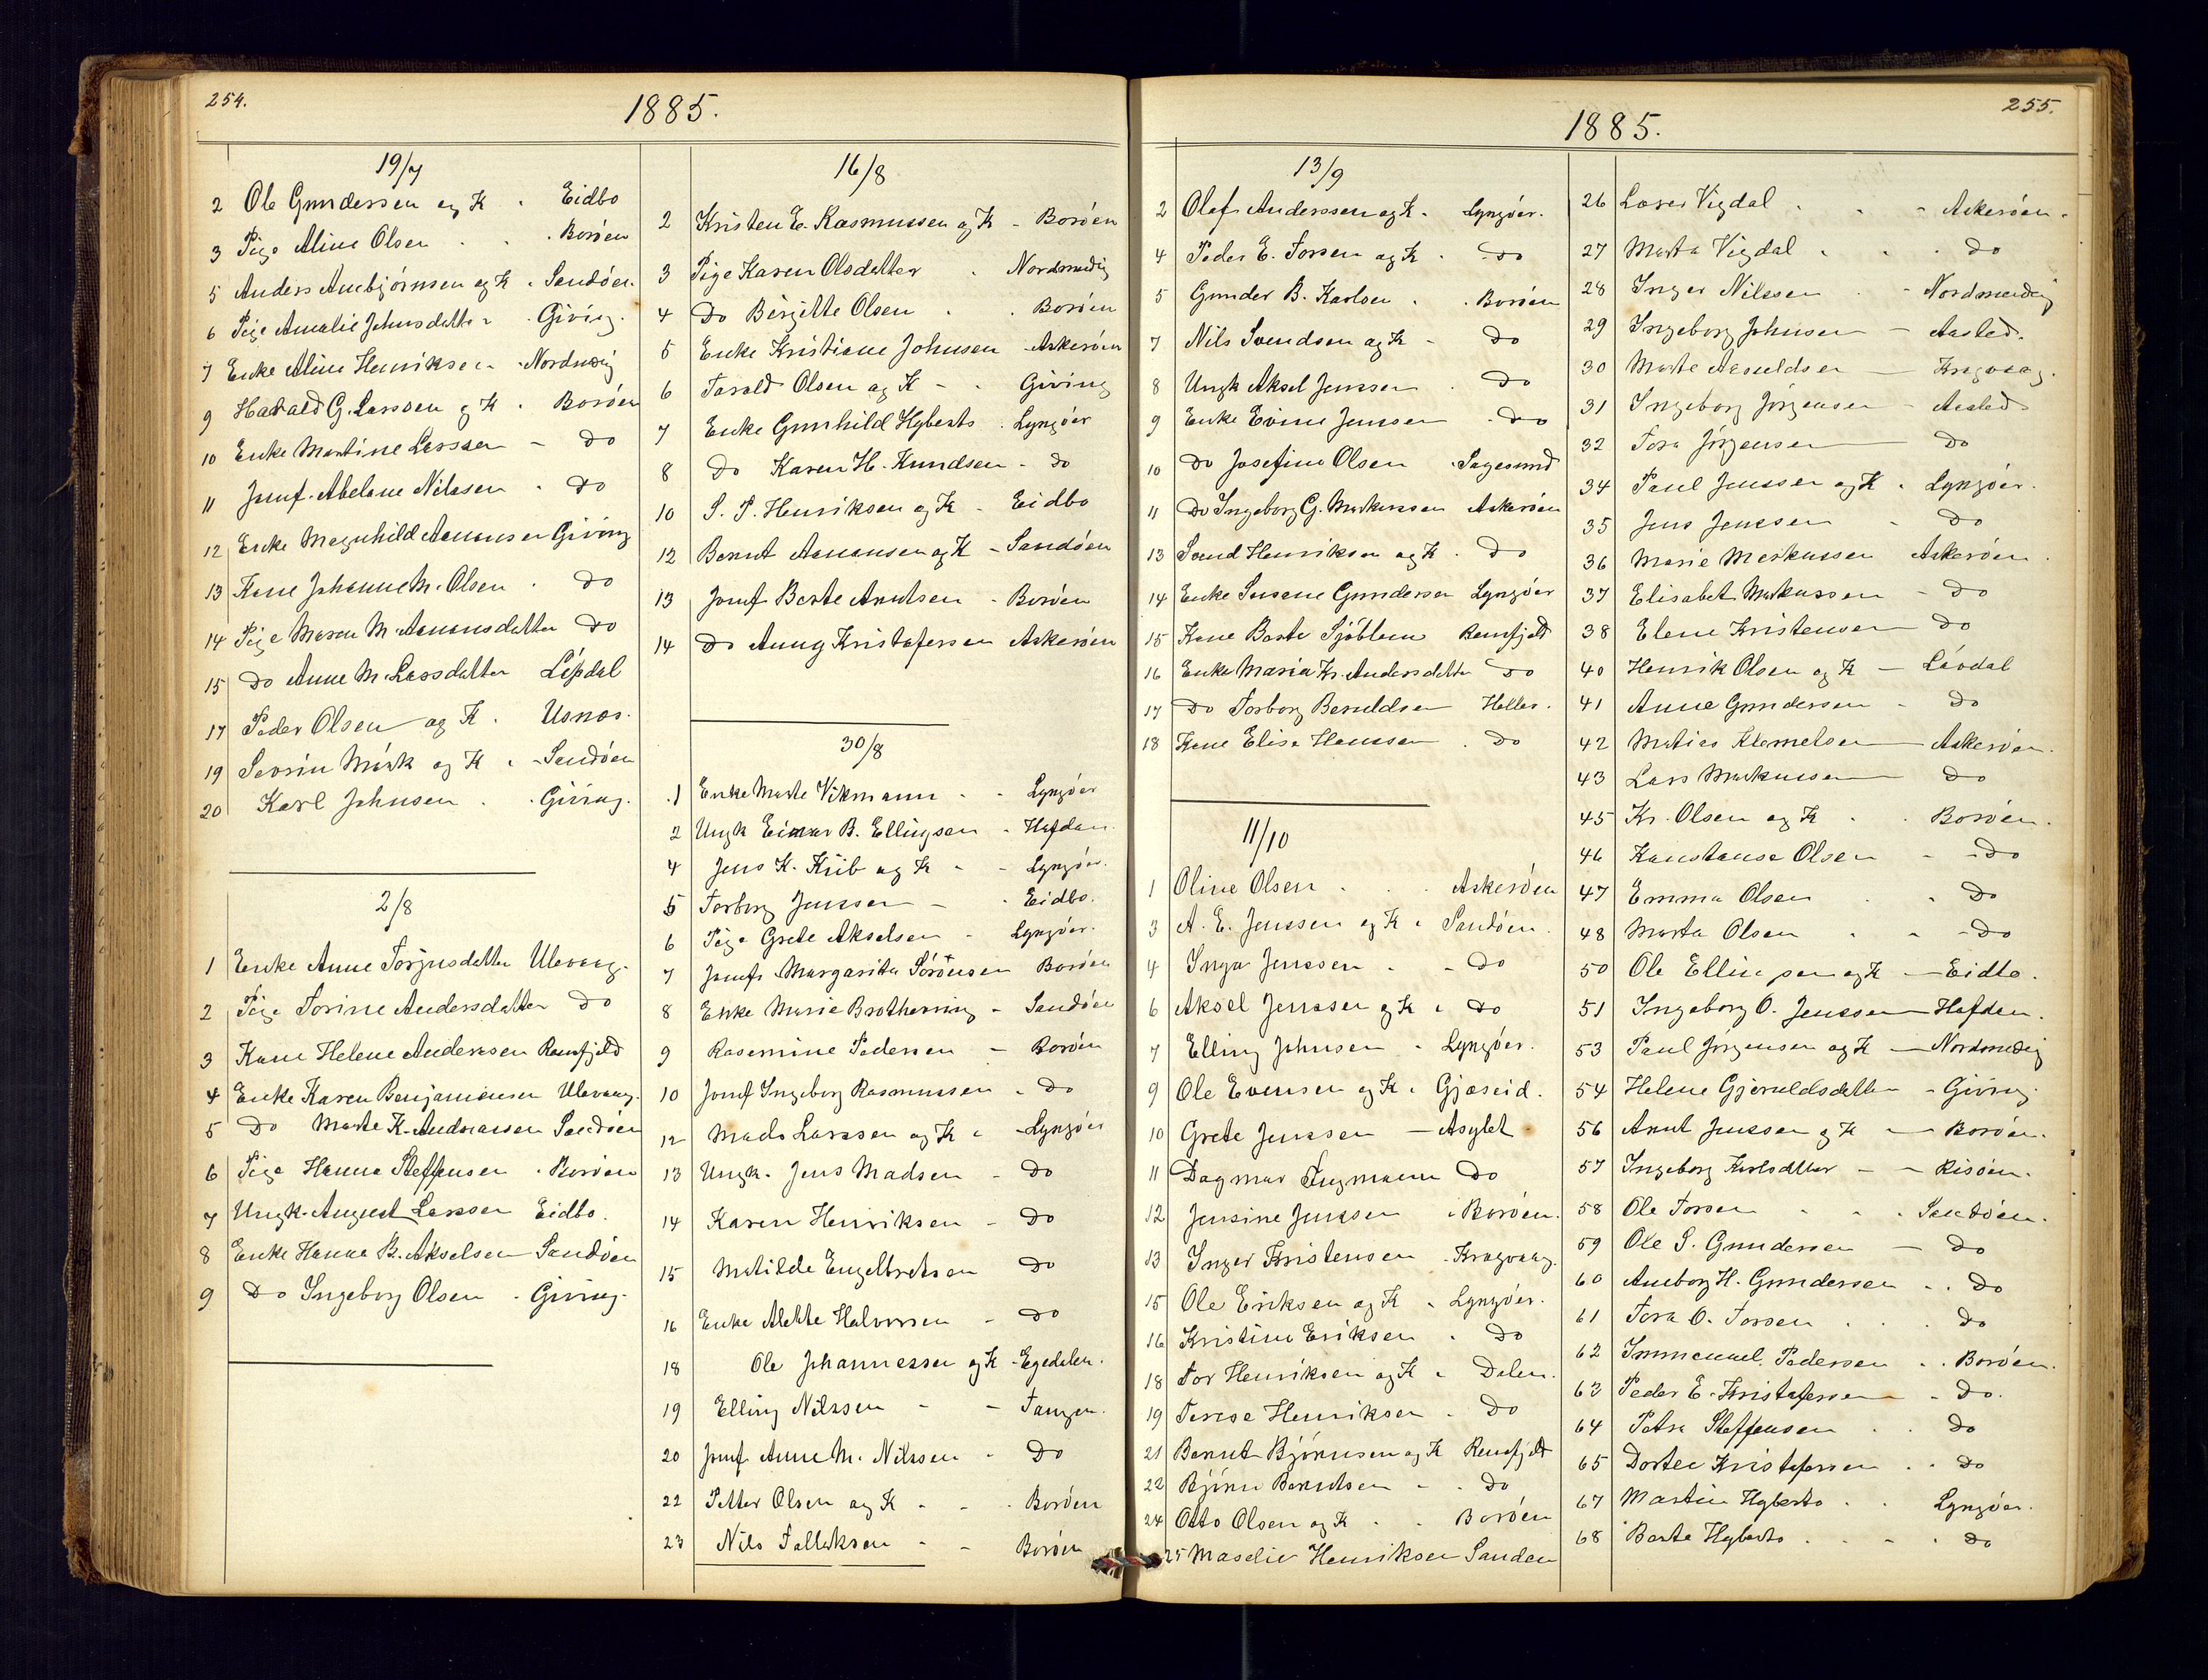 254.
1885.
19/7
2 Ole Gundersen og K Eidbo
3 Pige Aline Olsen Borøen
5 Anders Anebjørnsen og K Sandøen.
6 Pige Amalie Johnsdatter Giving.
7 Enke Aline Henriksen Nordmdig
9 Harald G. Larssen og K Borøen
10 Enke Martine Larssen - Do
11 Jomf. Abelone Nilssen Do
12 Enke Magnhild Aanonsen Giving
13 Kone Johanne M. Olsen Do
14 Pige Maren M. Aanonsdatter Do
15 Do Anne M. Larsdatter Løvdal
17 Peder Olsen og K. Usnæs.
19 Severin Mørk og K Sandøen
20 Karl Johnsen Giving.
2/8
1 Enke Anne Torjusdatter Ulevaag.
2 Pige Torine Andersdatter Do
3 Kone Helene Anderssen Ramsfjeld
4 Enke Karen Benjaminsen Ulevaag.
5 Do Marte K. Andreassen Sandøen
6 Pige Hanna Steffensen Borøen
7 Ungk. August Larssen Eidbo.
8 Enke Hanna B. Akselsen Sandøen
9 Do Ingeborg Olsen Giving.
16/8
2 Kristen E. Rasmussen og K - Borøen
3 Pige Karen Olsdatter Nordmedig
4 Do Birgitte Olsen Borøen
5 Enke Kristiane Johnsen Askerøen
6 Tarald Olsen og K - Giving
7 Enke Gunhild Hyberts Lyngøer
8 Do Karen H. Knudsen - do
10 S. P. Henriksen og K Eidbo
12 Bernt Aanonsen og K - Sandøen
13 Jomf Berte Knutsen - Borøen
14 Do Anny Kristofersen Askerøen
30/8
1 Enke Marte Vikmann - Lyngøer
2 Ungk Einar B. Ellingsen - Hafdan.
4 Jens K. Kiib og K - Lyngøer.
5 Torborg Jenssen - Eidbo.
6 Pige Grete Akselsen - Lyngøer.
7 Jomfr Margarita Sörensen Borøen
8 Enke Marie Brotherring - Sandøen
9 Rasemine Pedersen - Borøen
10 Jomf Ingeborg Rasmussen - Do
12 Mads Larssen og K - Lyngøer
13 Ungk. Jens Madsen - Do
14 Karen Henriksen - Do
15 Matilde Engelbretsen Do
16 Enke Alette Halvorsen - Do
18 Ole Johannessen og K - Egedalen.
19 Elling Nilssen - - Tangen.
20 Jomf Anne M. Nilssen - Do
22 Petter Olsen og K - - Borøen
23 Nils Tallaksen - - Borøen
255.
1885.
13/9
2 Olaf Anderssen og K. Lyngøer.
4 Peder E. Torsen og K Do
5 Gunder B. Karlsen Borøen
7 Nils Svendsen og K - Do
8 Ungk Aksel Jenssen Do
9 Enke Evine Jenssen Do
10 Do Josefine Olsen Sagesund
11 Do Ingeborg G. Markussen Askerøen
13 Svend Henriksen og K. Do
14 Enke Susane Gundersen Lyngøer
15 Kone Berte Sjøblom Ramsfjeld
16 Enke Maria Kr. Andersdatter Do
17 Do Torborg Beruldsen Helles.
18 Kone Elise Hanssen Do
11/10
1 Oline Olsen Askerøen
3 A. E. Jenssen og K Sandøen.
4 Inga Jenssen - Do
6 Aksel Jenssen og K Do
7 Elling Johnsen Lyngøer.
9 Ole Evensen og K Gjæseid.
10 Grete Jenssen - Asylet
11 Dagmar Tugmann Do
12 Jensine Jenssen Borøen.
13 Inger Kristensen Kragvaag.
15 Ole Eriksen og K Lyngøer.
16 Kristine Eriksen Do
18 Tor Henriksen og K Dalen.
19 Terese Henriksen Do
21 Bernt Bjørnsen og K Ramsfjeld
22 Bjørn Berntsen - Do
24 Otto Olsen og K Borøen
25 Maselie Henriksen Sanden
26 Laver Vigdal Askerøen.
27 Marta Vigdal Do
28 Inger Nilssen Nordmedig
29 Ingeborg Johnsen - Aasted.
30 Marte Asouldsen - Kragvaag.
31 Ingeborg Jörgensen - Aasted
32 Tora Jörgensen Do
34 Paul Jenssen og K Lyngøer.
35 Jens Jenssen - Do
36 Marie Markussen Askerøen.
37 Elisabet Markussen - Do
38 Elene Kristensen Do
40 Henrik Olsen og K - Løvdal
41 Anne Gundersen - Do
42 Matias Klemetsen Askerøen.
43 Lars Markussen Do
45 Kr. Olsen og K Borøen.
46 Konstanse Olsen - Do
47 Emma Olsen Do
48 Marta Olsen - Do
50 Ole Ellingsen og K - Eidbo.
51 Ingeborg O. Jenssen - Hafden.
53 Paul Jörgensen og K - Nordmedig
54 Helene Gjeruldsdatter - Giving
56 Knut Jenssen og K - Borøen.
57 Ingeborg Karlsdatter - - Risøen.
58 Ole Torsen Sandøen.
59 Ole S. Gundersen - Do
60 Amborg H. Gundersen Do
61 Tora O. Torsen Do
62 Immanuel Pedersen Borøen.
63 Peder E. Kristofersen - Do.
64 Petra Steffensen Do
65 Dortee Kristofersen Do
67 Martin Hyberts Lyngøer.
68 Berte Hyberts Do